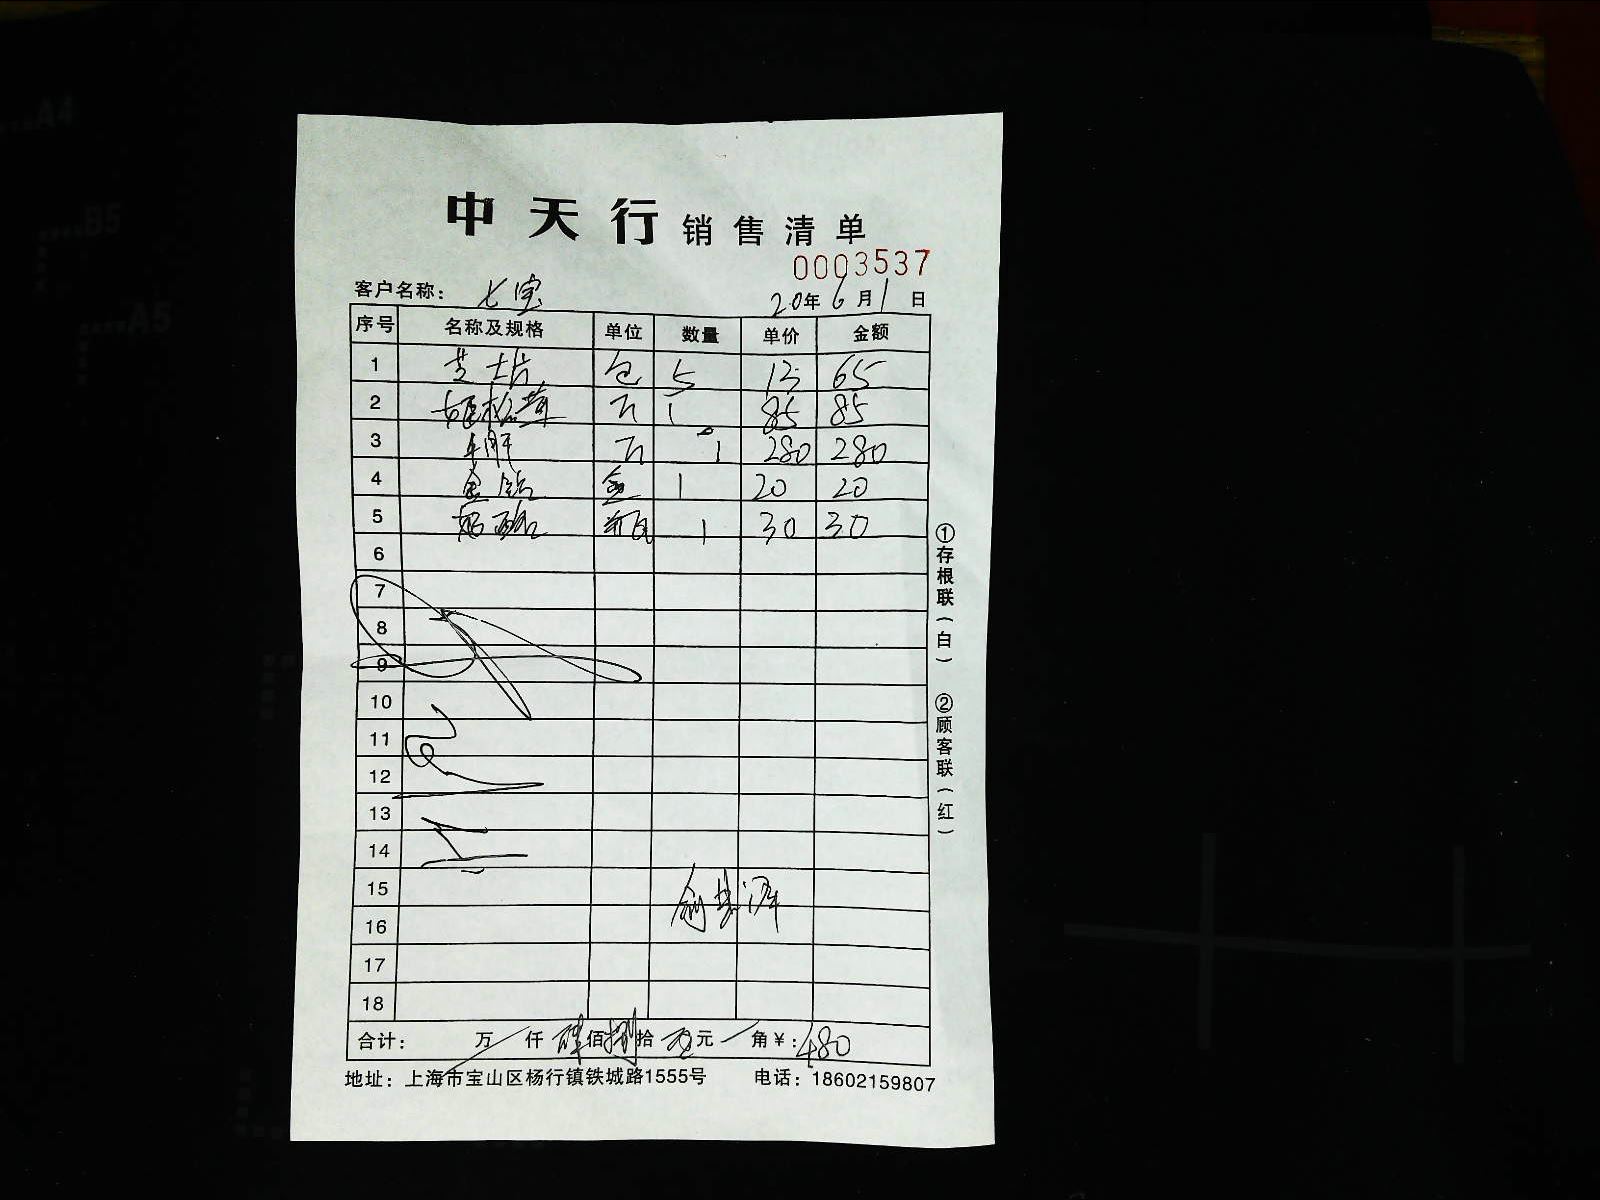 中天行销售清单
0003537
客户名称： 七宝 20年6月1日
序号 名称及规格 单位 数量 单价 金额
1 芝士片 包 5 13 65
2 姬松茸 斤 1 85 85
3 斤 1 280 280
4 盒 1 20 20
5 奶酪 瓶 1 30 30
6
7
8
9
10
11
12
13
14
15
16
17
18
合计： 万 仟 肆佰 捌拾 元 角￥：480
地址：上海市宝山区杨行镇铁城路1555号 电话：18602159807
①存根联（白） ②顾客联（红）
A4
B5
A5